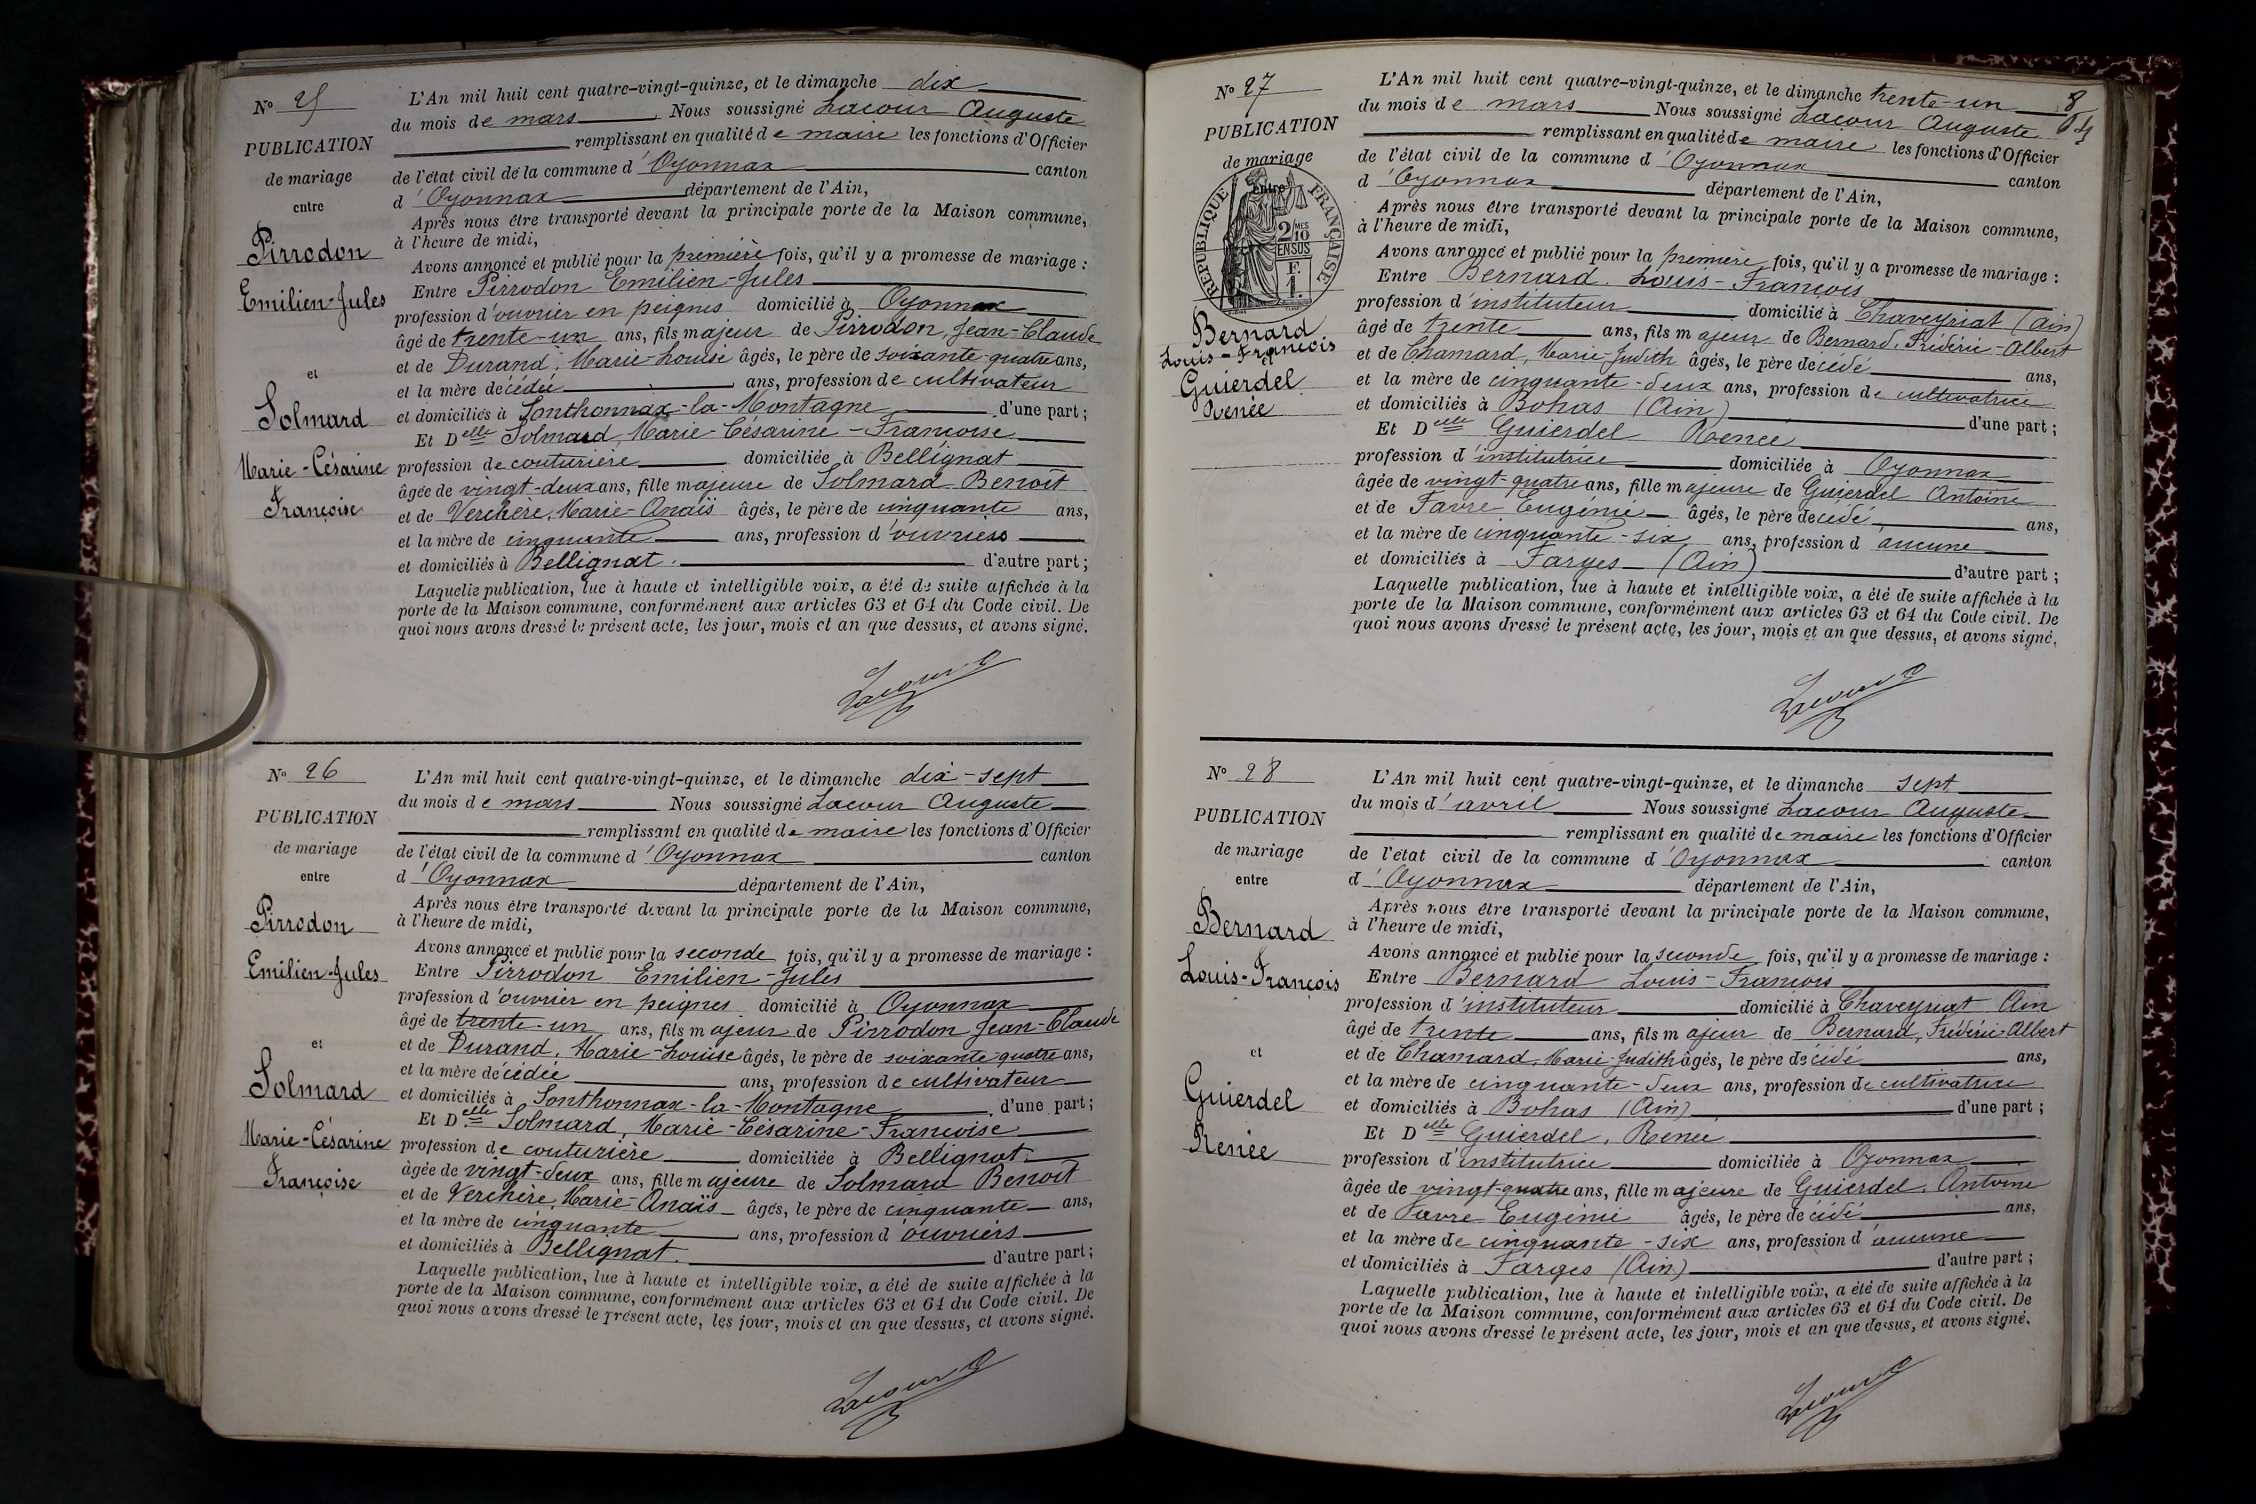 N° 25
PUBLICATION
de mariage
entre
Pirrodon
Emilien-Jules
et
Solmard
Marie-Césarine
Françoise
L'An mil huit cent quatre-vingt-quinze, et le dimanche dix
du mois de mars Nous soussigné Lacour Auguste
remplissant en qualité de maire les fonctions d'Officier
de l'état civil de la commune d'Oyonnax canton
d'Oyonnax département de l'Ain,
Après nous être transporté devant la principale porte de la Maison commune,
à l'heure de midi,
Avons annoncé et publié pour la première fois, qu'il y a promesse de mariage :
Entre Pirrodon Emilien-Jules
profession d'ouvrier en peignes domicilié à Oyonnax
âgé de trente-un ans, fils majeur de Pirrodon, Jean-Claude
et de Durand, Marie-Louise âgés, le père de soixante-quatre ans,
et la mère décédée ans, profession de cultivateur
et domiciliés à Sonthonnax-la-Montagne d'une part ;
Et Delle Solmard, Marie-Césarine-Françoise
profession de couturière domiciliée à Bellignat
âgée de vingt-deux ans, fille majeure de Solmard Benoît
et de Verchère, Marie-Anaïs âgés, le père de cinquante ans,
et la mère de cinquante ans, profession d'ouvriers
et domiciliés à Bellignat. d'autre part ;
Laquelle publication, lue à haute et intelligible voix, a été de suite affichée à la
porte de la Maison commune, conformément aux articles 63 et 64 du Code civil. De
quoi nous avons dressé le présent acte, les jour, mois et an que dessus, et avons signé.
Lacour A
N° 26
PUBLICATION
de mariage
entre
Pirrodon
Emilien-Jules
et
Solmard
Marie-Césarine
Françoise
L'An mil huit cent quatre-vingt-quinze, et le dimanche dix-sept
du mois de mars Nous soussigné Lacour Auguste
remplissant en qualité de maire les fonctions d'Officier
de l'état civil de la commune d'Oyonnax canton
d'Oyonnax département de l'Ain,
Après nous être transporté devant la principale porte de la Maison commune,
à l'heure de midi,
Avons annoncé et publié pour la seconde fois, qu'il y a promesse de mariage :
Entre Pirrodon Emilien-Jules
profession d'ouvrier en peignes domicilié à Oyonnax
âgé de trente-un ans, fils majeur de Pirrodon Jean-Claude
et de Durand, Marie-Louise âgés, le père de soixante quatre ans,
et la mère décédée ans, profession de cultivateur
et domiciliés à Sonthonnax-la-Montagne d'une part ;
Et Delle Solmard, Marie-Césarine-Françoise
profession de couturière domiciliée à Bellignat
âgée de vingt-deux ans, fille majeure de Solmard Benoît
et de Verchère, Marie-Anaïs âgés, le père de cinquante ans,
et la mère de cinquante ans, profession d'ouvriers
et domiciliés à Bellignat. d'autre part ;
Laquelle publication, lue à haute et intelligible voix, a été de suite affichée à la
porte de la Maison commune, conformément aux articles 63 et 64 du Code civil. De
quoi nous avons dressé le présent acte, les jour, mois et an que dessus, et avons signé.
Lacour A
8
N° 27
PUBLICATION
de mariage
entre
REPUBLIQUE FRANÇAISE
2/10 MES
EN SUS
F.
1.
Bernard
Louis-François
Guierdel
Renée
L'An mil huit cent quatre-vingt-quinze, et le dimanche trente-un
du mois de mars Nous soussigné Lacour Auguste
remplissant en qualité de maire les fonctions d'Officier
de l'état civil de la commune d'Oyonnax canton
d'Oyonnax département de l'Ain,
Après nous être transporté devant la principale porte de la Maison commune,
à l'heure de midi,
Avons annoncé et publié pour la première fois, qu'il y a promesse de mariage :
Entre Bernard Louis-François
profession d'instituteur domicilié à Chaveyriat (Ain)
âgé de trente ans, fils majeur de Bernard, Frédéric-Albert
et de Chamard, Marie-Judith âgés, le père décédé ans,
et la mère de cinquante-deux ans, profession de cultivatrice
et domiciliés à Bohas (Ain) d'une part ;
Et Delle Guierdel Renée
profession d'institutrice domiciliée à Oyonnax
âgée de vingt-quatre ans, fille majeure de Guierdel Antoine
et de Favre Eugénie âgés, le père décédé ans,
et la mère de cinquante-six ans, profession d aucune
et domiciliés à Farges (Ain) d'autre part ;
Laquelle publication, lue à haute et intelligible voix, a été de suite affichée à la
porte de la Maison commune, conformément aux articles 63 et 64 du Code civil. De
quoi nous avons dressé le présent acte, les jour, mois et an que dessus, et avons signé.
Lacour A
N° 28
PUBLICATION
de mariage
entre
Bernard
Louis-François
et
Guierdel
Renée
L'An mil huit cent quatre-vingt-quinze, et le dimanche sept
du mois d'avril Nous soussigné Lacour Auguste
remplissant en qualité de maire les fonctions d'Officier
de l'état civil de la commune d'Oyonnax canton
d'Oyonnax département de l'Ain,
Après nous être transporté devant la principale porte de la Maison commune,
à l'heure de midi,
Avons annoncé et publié pour la seconde fois, qu'il y a promesse de mariage :
Entre Bernard Louis-François
profession d'instituteur domicilié à Chaveyriat Ain
âgé de trente ans, fils majeur de Bernard, Frédéric-Albert
et de Chamard, Marie-Judith âgés, le père décédé ans,
et la mère de cinquante-deux ans, profession de cultivatrice
et domiciliés à Bohas (Ain) d'une part ;
Et Delle Guierdel, Renée
profession d'institutrice domiciliée à Oyonnax
âgée de vingt-quatre ans, fille majeure de Guierdel, Antoine
et de Favre Eugénie âgés, le père décédé ans,
et la mère de cinquante-six ans, profession d'aucune
et domiciliés à Farges (Ain) d'autre part ;
Laquelle publication, lue à haute et intelligible voix, a été de suite affichée à la
porte de la Maison commune, conformément aux articles 63 et 64 du Code civil. De
quoi nous avons dressé le présent acte, les jour, mois et an que dessus, et avons signé.
Lacour A